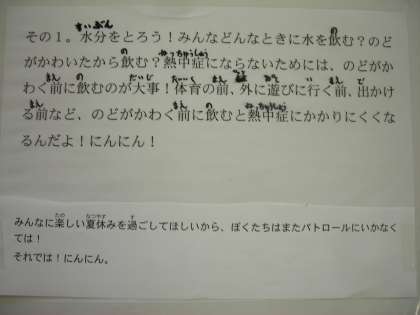 その１。水分をとろう！みんなどんなときに水を飲む？のど
がかわいたから飲む？熱中症にならないためには、のどがか
わく前に飲むのが大事！体育の前、外に遊びに行く前、出かけ
る前など、のどがかわく前に飲むと熱中症にかかりにくくな
るんだよ！にんにん！
みんなに楽しい夏休みを過ごしてほしいから、ぼくたちはまたパトロールにいかなく
ては！
それでは！にんにん。